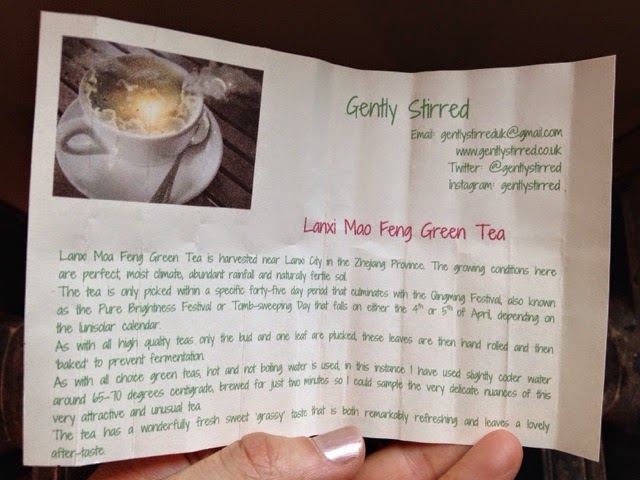 Gently Stirred
Email: gentlystirreduk@gmail.com
www.gentlystirred.co.uk
Twitter: @gentlystirred
Instagram: gentlystirred
Lanxi Mao Feng Green Tea
Lanxi Moa Feng Green Tea is harvested near Lanxi City in the Zhejiang Province. The growing conditions here
are perfect; moist climate, abundant rainfall and naturally fertile soil.
The tea is only picked within a specific forty-five day period that culminates with the Qingming Festival, also known
as the Pure Brightness Festival or Tomb-sweeping Day that falls on either the 4th or 5th of April, depending on
the lunisolar calendar.
As with all high quality teas only the bud and one leaf are plucked, these leaves are then hand rolled and then
'baked' to prevent fermentation.
As with all choice green teas, hot and not boiling water is used, in this instance I have used slightly cooler water
around 65-70 degrees centigrade, brewed for just two minutes so I could sample the very delicate nuances of this
very attractive and unusual tea.
The tea has a wonderfully fresh sweet 'grassy' taste that is both remarkably refreshing and leaves a lovely
after-taste.